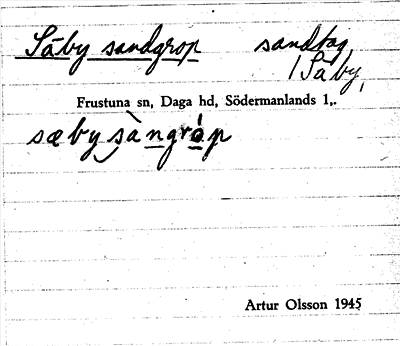 Säby sandgrop sandtag
i Säby,
Frustuna sn, Daga hd, Södermanlands l,.
sæby sàngråp
Artur Olsson 1945